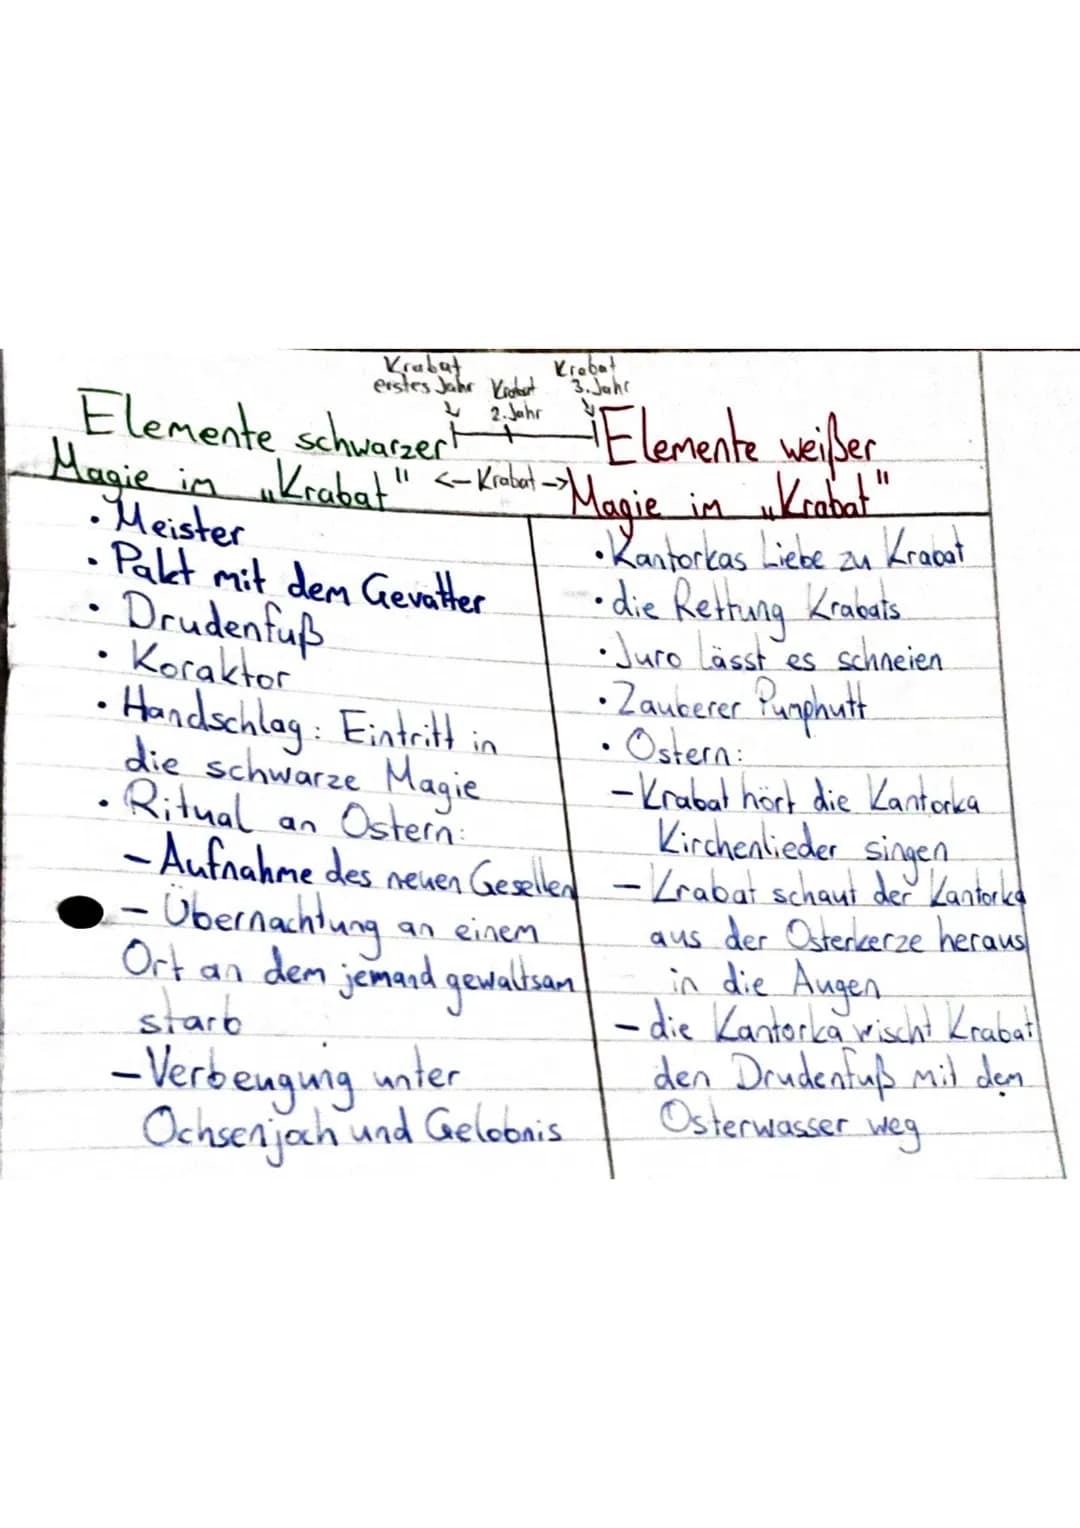 Krabat
erstes Jahr
Krabat
2. Jahr
Krabat
3. Jahr
Elemente schwarzer
Magie im „Krabat"
<- Krabat ->
Elemente weißer
Magie im „Krabat"
• Meister
• Pakt mit dem Gevatter
• Drudenfuß
• Koraktor
• Handschlag: Eintritt in
die schwarze Magie
• Ritual an Ostern:
- Aufnahme des neuen Gesellen
- Übernachtung an einem
Ort an dem jemand gewaltsam
starb
- Verbeugung unter
Ochsenjoch und Gelöbnis
• Kantorkas Liebe zu Krabat
• die Rettung Krabats
• Juro lässt es schneien
• Zauberer Pumphutt
• Ostern:
- Krabat hört die Kantorka
Kirchenlieder singen
- Krabat schaut der Kantorka
aus der Osterkerze heraus
in die Augen
- die Kantorka wischt Krabat
den Drudenfuß mit dem
Osterwasser weg